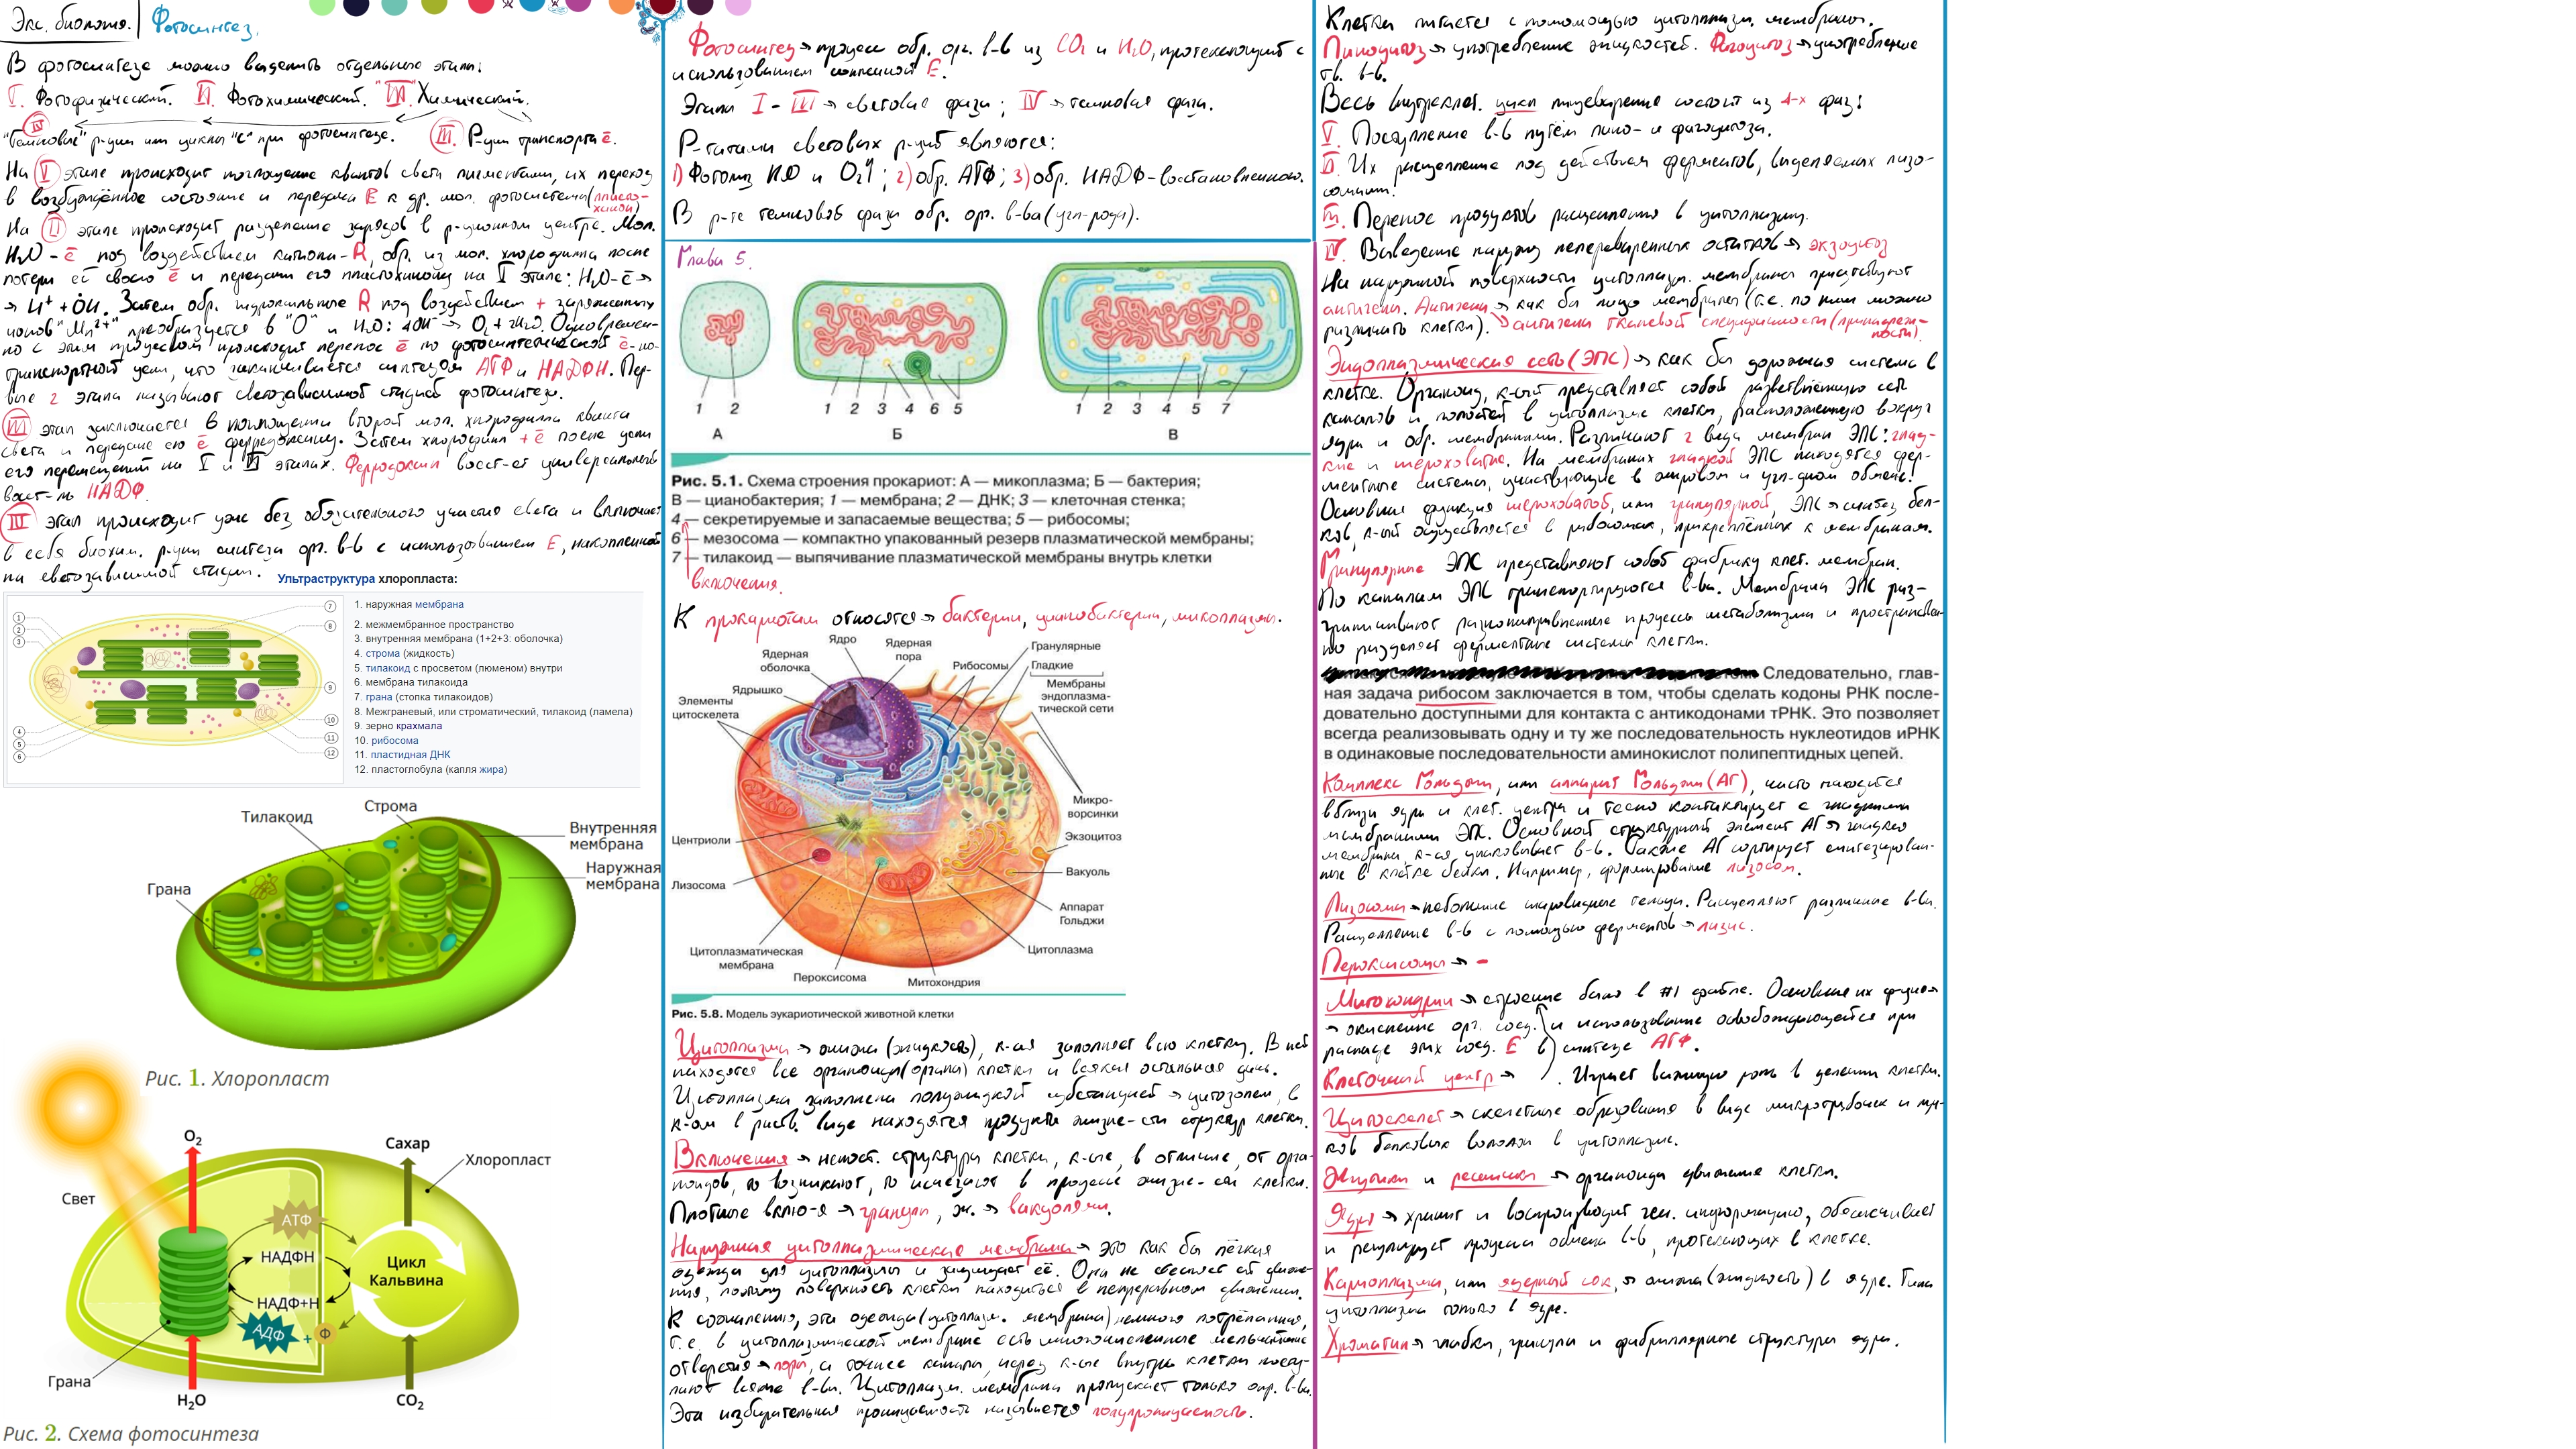 Экз. биология. | Фотосинтез.
В фотосинтезе можно выделить отдельные этапы:
I. Фотофизический. II. Фотохимический. "III". Химический.
IV
"Темновые" р-ции или циклы "С" при фотосинтезе. III. Р-ции транспорта ē.
На I этапе происходит поглощение квантов света пигментами, их переход
в возбуждённое состояние и передача E к др. мол. фотосистемы (пластохинон)
На II этапе происходит разделение зарядов в р-ционном центре. Мол.
H₂O - ē под воздействием катиона-R, обр. из мол. хлорофилла после
потери её своего ē и передачи его пластохинону на I этапе: H₂O-ē→
→ H⁺ + ȮH. Затем обр. гидроксильные R под воздействием + заряженных
ионов "Mn²⁺" преобразуется в "O" и H₂O: 4OH → O₂ + 2H₂O. Одновремен-
но с этим процессом происходит перенос ē по фотосинтетической ē-но-
транспортной цепи, что заканчивается синтезом АТФ и НАДФН. Пер-
вые 2 этапа называют светозависимой стадией фотосинтеза.
III этап заключается в поглощении второй мол. хлорофилла кванта
света и передаче его ē ферредоксину. Затем хлорофилл +ē после цепи
его перемещений на I и II этапах. Ферродоксин восст-ет универсального
восст-ль НАДФ.
IV этап происходит уже без обязательного участия света и включает
в себя биохим. р-ции синтеза орг. в-в с использованием E, накопленной
на светозависимой стадии.
Ультраструктура хлоропласта:
1. наружная мембрана
2. межмембранное пространство
3. внутренняя мембрана (1+2+3: оболочка)
4. строма (жидкость)
5. тилакоид с просветом (люменом) внутри
6. мембрана тилакоида
7. грана (стопка тилакоидов)
8. Межграновый, или строматический, тилакоид (ламела)
9. зерно крахмала
10. рибосома
11. пластидная ДНК
12. пластоглобула (капля жира)
1
2
3
4
5
6
7
8
9
10
11
12
Строма
Тилакоид
Внутренняя
мембрана
Наружная
мембрана
Грана
Рис. 1. Хлоропласт
O₂
Сахар
Хлоропласт
Свет
АТФ
НАДФН
Цикл
Кальвина
НАДФ+Н
АДФ + Ф
Грана
H₂O
CO₂
Рис. 2. Схема фотосинтеза
Фотосинтез → процесс обр. орг. в-в из CO₂ и H₂O, протекающий с
использованием солнечной E.
Этапы I - III → световые фазы; IV → темновая фаза.
Р-татами световых р-ций являются:
1) Фотолиз H₂O и O₂↑; 2) обр. АТФ; 3) обр. НАДФ-восстановленного.
В р-те темновой фазы обр. орг. в-ва (угл-рода).
Глава 5.
1 2
А
1 2 3 4 6 5
Б
1 2 3 4 5 7
В
Рис. 5.1. Схема строения прокариот: А — микоплазма; Б — бактерия;
В — цианобактерия; 1 — мембрана; 2 — ДНК; 3 — клеточная стенка;
4 — секретируемые и запасаемые вещества; 5 — рибосомы;
6 — мезосома — компактно упакованный резерв плазматической мембраны;
7 — тилакоид — выпячивание плазматической мембраны внутрь клетки
включения.
К прокариотам относятся → бактерии, цианобактерии, микоплазмы.
Ядро
Ядерная
оболочка
Ядерная
пора
Рибосомы
Гранулярные
Гладкие
Мембраны
эндоплазма-
тической сети
Ядрышко
Элементы
цитоскелета
Микро-
ворсинки
Экзоцитоз
Центриоли
Вакуоль
Лизосома
Аппарат
Гольджи
Цитоплазматическая
мембрана
Пероксисома
Митохондрия
Цитоплазма
Рис. 5.8. Модель эукариотической животной клетки
Цитоплазма → (жидкость), к-ая заполняет всю клетку. В ней
находятся все органоиды (органы) клетки и всякая остальная
Цитоплазма заполнена полужидкой субстанцией → цитозолем, в
к-ом в раств. виде находятся продукты жизне-сти структур клетки.
Включения → непост. структуры клетки, к-ые, в отличие, от орга-
ноидов, то возникают, то исчезают в процессе жизне-сти клетки.
Плотные вклю-я → гранулы, ж. → вакуолями.
Наружная цитоплазматическая мембрана → это как бы лёгкая
одежда для цитоплазмы и защищает её. Она не
поэтому поверхность клетки находиться в непрерывном движении.
К сожалению, эта одежда (цитоплазм. мембрана) немного потрёпанная,
т.е. в цитоплазматической мембране есть многочисленные мельчайшие
отверстия → поры, а точнее каналы, через к-ые внутрь клетки посту-
пают всякие в-ва. Цитоплазм. мембрана пропускает только опр. в-ва.
Эта избирательная проницаемость называется полупроницаемость.
Клетка питается с помощью цитоплазм. мембраны.
Пиноцитоз → употребление жидкостей. Фагоцитоз → употребление
тв. в-в.
Весь внутриклет. цикл пищеварения состоит из 4-х фаз:
I. Поступление в-в путём пино- и фагоцитоза.
II. Их расщепление под действием ферментов, выделяемых лизо-
сомами.
III. Перенос продуктов расщепления в цитоплазму.
IV. Выведение наружу непереваренных остатков → экзоцитоз
На наружной поверхности цитоплазм. мембраны присутствуют
антигены. Антигены → как бы лицо мембраны (т.е. по ним можно
различать клетки). → антигены тканевой специфичности (принадлеж-
ности).
Эндоплазмическая сеть (ЭПС) → как бы дорожная система в
клетке. Органоид, к-ый представляет собой разветвлённую сеть
каналов и полостей в цитоплазме клетки, расположенную вокруг
ядра и обр. мембранами. Различают 2 вида мембран ЭПС: глад-
кие и шероховатые. На мембранах гладкой ЭПС находятся фер-
ментные системы, участвующие в жировом и угл-дном обмене!
Основная функция шероховатой, или гранулярной, ЭПС → синтез бел-
ков, к-ый осуществляется в рибосомах, прикреплённых к мембранам.
Гранулярные ЭПС представляют собой фабрику клет. мембран.
По каналам ЭПС транспортируются в-ва. Мембраны ЭПС раз-
граничивают разнонаправленные процессы метаболизма и пространствен-
но разделяет ферментные системы клетки.
Следовательно, глав-
ная задача рибосом заключается в том, чтобы сделать кодоны РНК после-
довательно доступными для контакта с антикодонами тРНК. Это позволяет
всегда реализовывать одну и ту же последовательность нуклеотидов иРНК
в одинаковые последовательности аминокислот полипептидных цепей.
Комплекс Гольджи, или аппарат Гольджи (АГ), часто находится
вблизи ядра и клет. центра и тесно контактирует с гладкими
мембранами ЭПС. Основной структурный элемент АГ → гладкая
мембрана, к-ая упаковывает в-в. Также АГ сортирует синтезирован-
ные в клетке белки. Например, формирование лизосом.
Лизосомы → небольшие шаровидные тельца. Расщепляют различные в-ва.
Расщепление в-в с помощью ферментов → лизис.
Пероксисомы → -
Митохондрии → строение было в #1 файле. Основные их функции
→ окисление орг. соед. и использование освобождающейся при
распаде этих соед. E в синтезе АТФ.
Клеточный центр → . Играет важную роль в делении клетки.
Цитоскелет → скелетные образования в виде микротрубочек и пуч-
ков белковых волокон в цитоплазме.
Жгутики и реснички → органоиды движения клетки.
Ядро → хранит и воспроизводит ген. информацию, обеспечивает
и регулирует процессы обмена в-в, протекающих в клетке.
Кариоплазма, или ядерный сок, → (жидкость) в ядре. Типа
цитоплазма только в ядре.
Хроматин → глыбки, гранулы и фибриллярные структуры ядра.